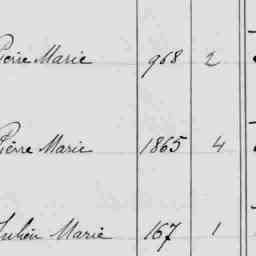 Pierre Marie 968 2
Pièrre Marie 1865 4
Julien Marie 167 1